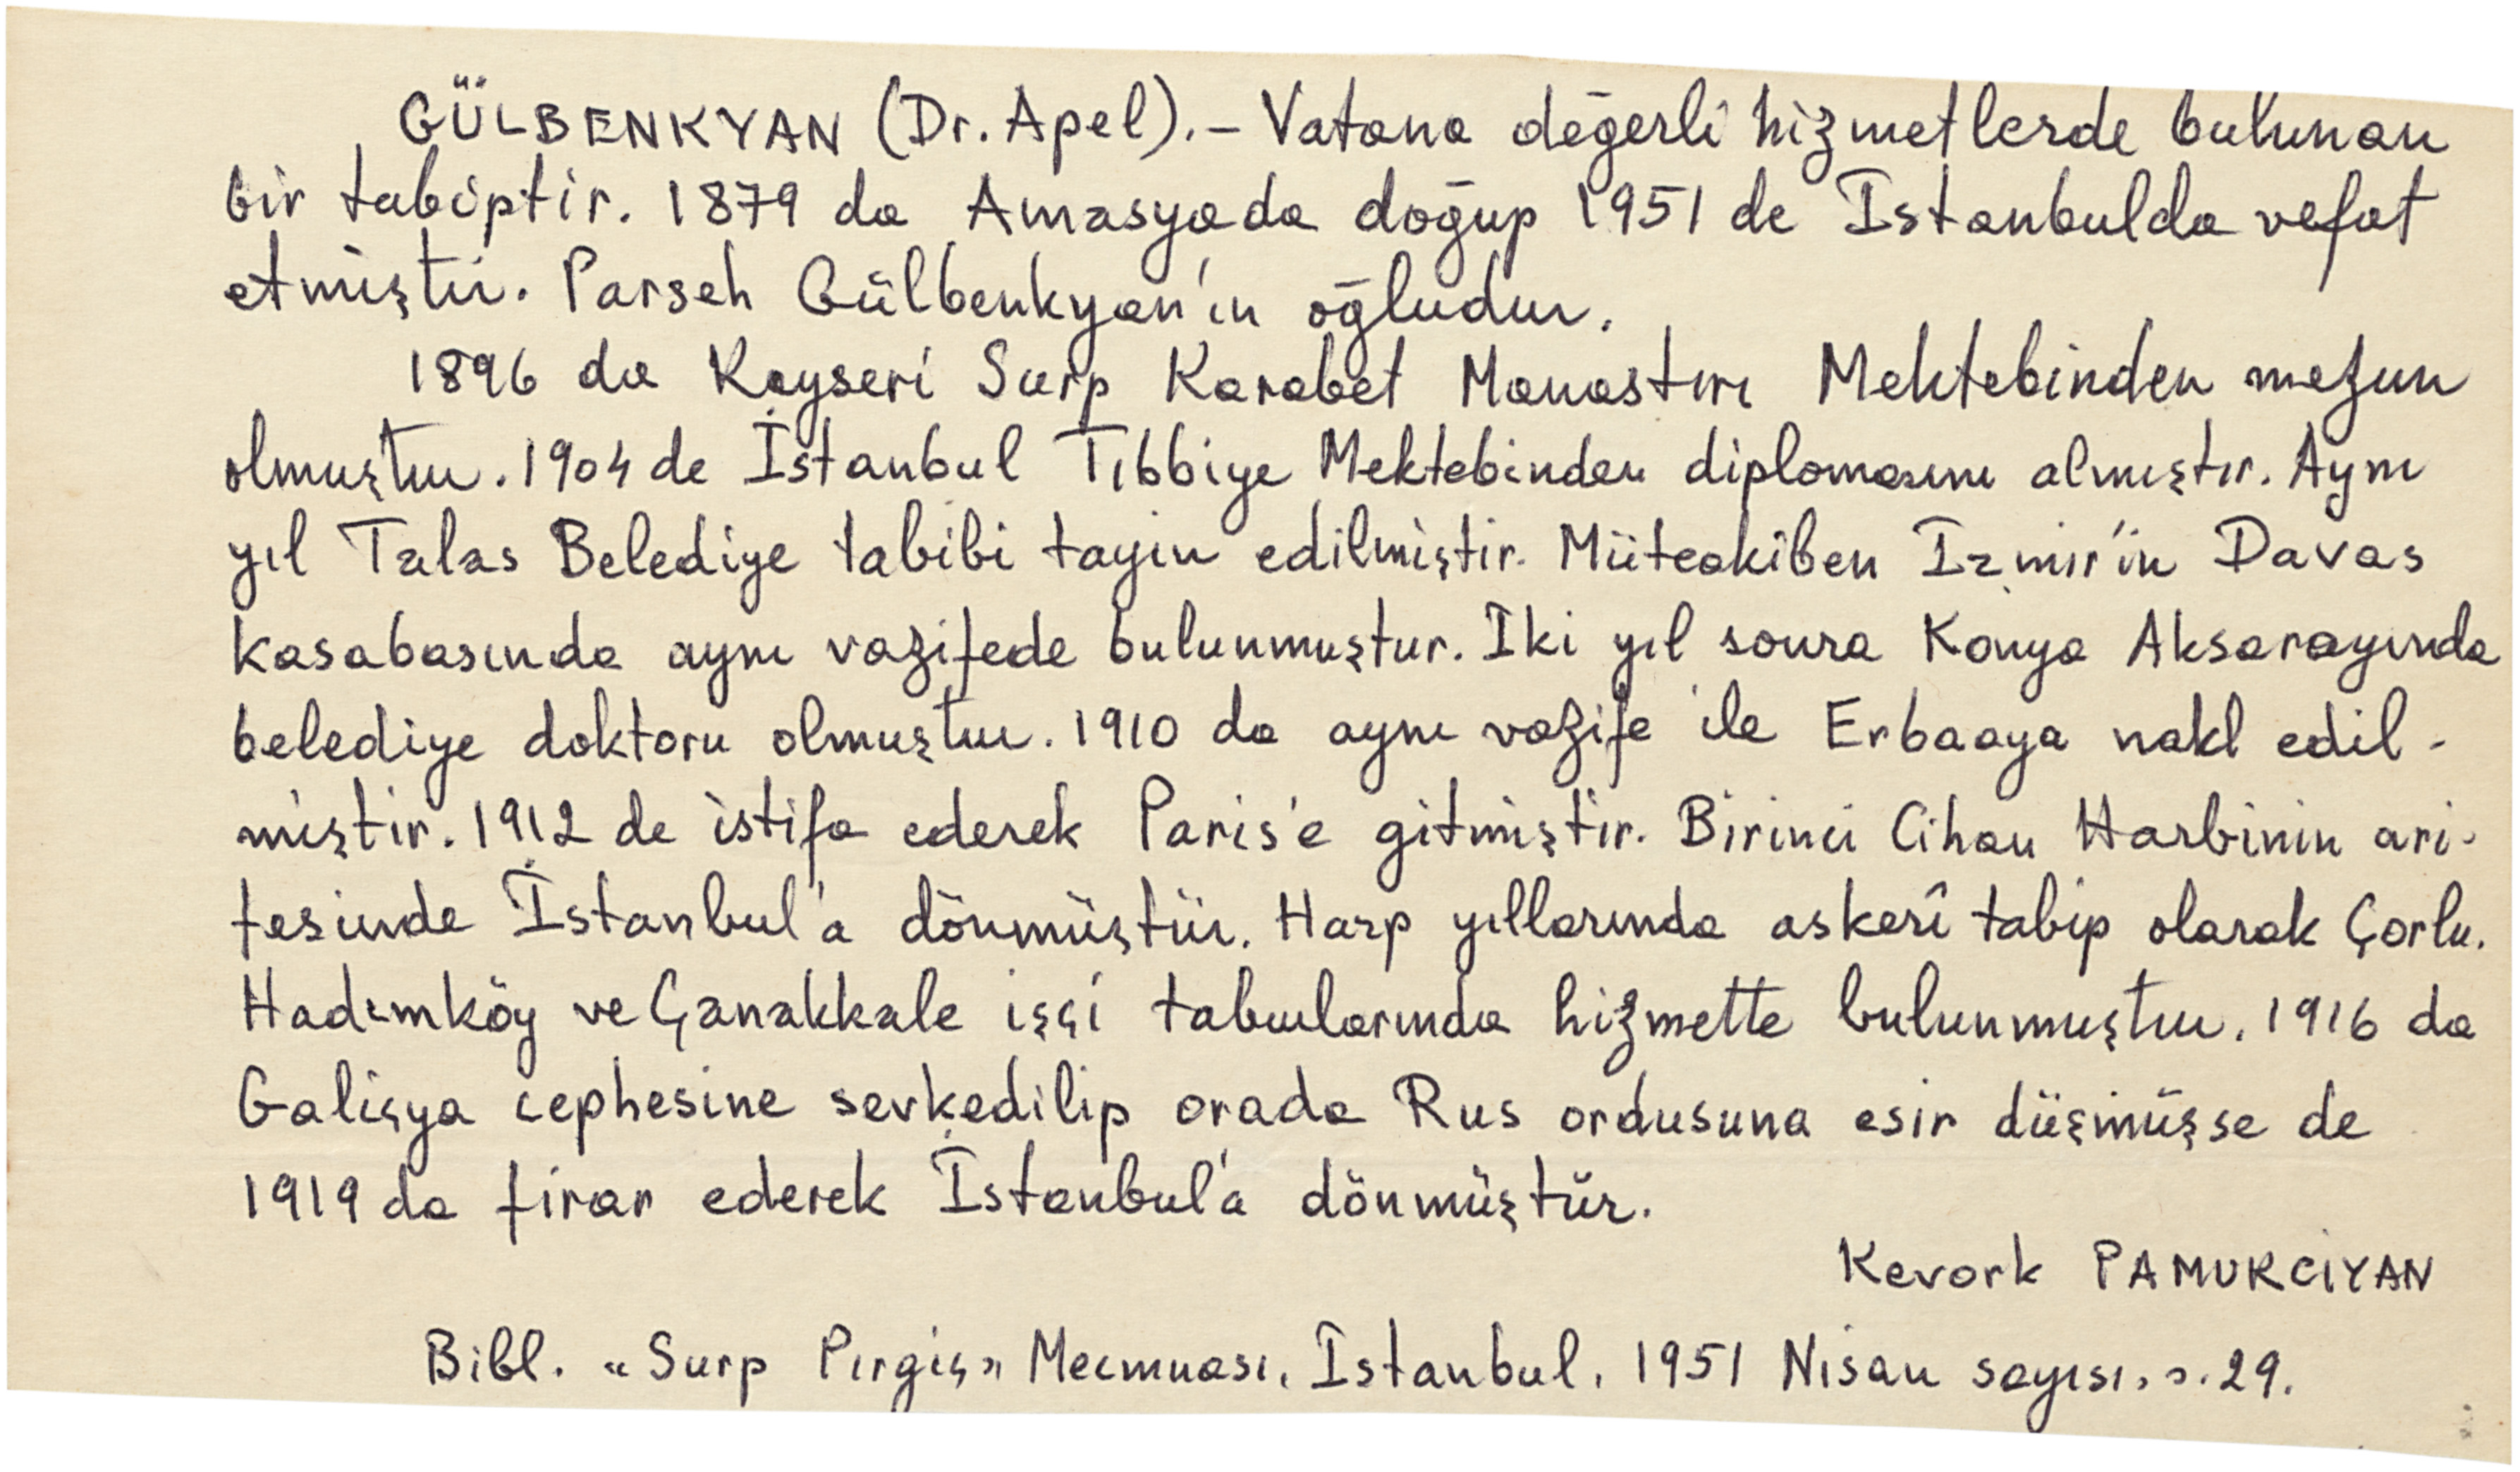 GÜLBENKYAN (Dr. Apel).- Vatana değerli hizmetlerde bulunan
bir tabiptir. 1879 da Amasyada doğup 1951 de Istanbulda vefat
etmiştir. Parseh Gülbenkyan'ın oğludur.
1896 da Kayseri Surp Karabet Manastırı Mektebinden mezun
olmuştur. 1904 de İstanbul Tıbbiye Mektebinden diplomasını almıştır. Aynı
yıl Talas Belediye tabibi tayin edilmiştir. Müteakiben Izmir'in Davas
kasabasında aynı vazifede bulunmuştur. Iki yıl sonra Konya Aksarayında
belediye doktoru olmuştur. 1910 da aynı vazife ile Erbaaya nakl edil-
miştir. 1912 de istifa ederek Paris'e gitmiştir. Birinci Cihan Harbinin ari-
fesinde İstanbul'a dönmüştür. Harp yıllarında askerî tabip olarak Çorlu.
Hadımköy ve Çanakkale işçi taburlarında hizmette bulunmuştur. 1916 da
Galiçya cephesine sevkedilip orada Rus ordusuna esir düşmüşse de
1919 da firar ederek İstanbul'a dönmüştür.
Kevork PAMUKCİYAN
Bibl. «Surp Pırgiç» Mecmuası, Istanbul, 1951 Nisan sayısı, s. 29.